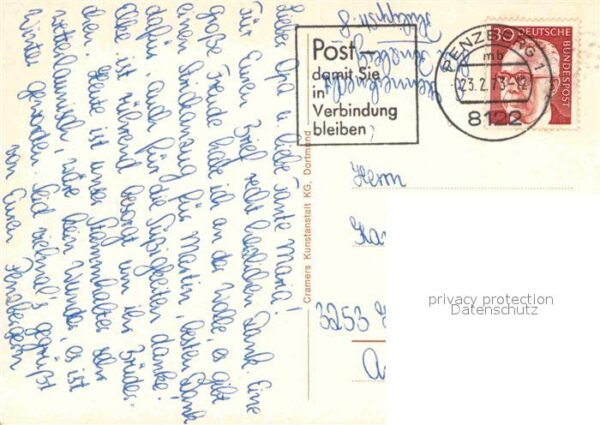 Liebe Opa u. liebe Tante Maria!
Für Euren Brief recht herzlichen Dank. Eine
große Freude habe ich an der Wolle, es gibt
einen Strickanzug für Martin, besten Dank
dafür, auch für die Süßigkeiten danke!
Elke ist rührend besorgt um ihr Brüder-
chen. Heute ist unser Stammhalter sehr
wetterlaunisch, wäre kein Wunder, es ist
Winter geworden. Seid vielmals gegrüßt
von Euren Penzbergern
Cramers Kunstanstalt KG, Dortmund
Post –
damit Sie
in
Verbindung
bleiben
PENZBERG 1
mb
23.2.73-12
8122
80
DEUTSCHE
BUNDESPOST
Herrn
3253
privacy protection
Datenschutz